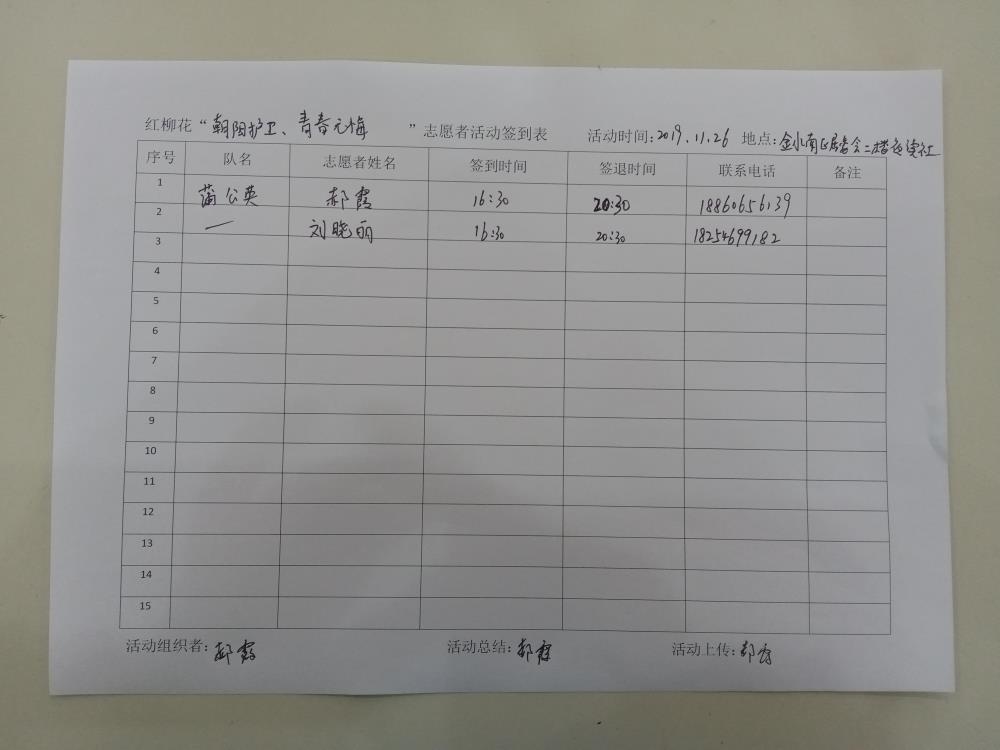 红柳花“朝阳护卫、青春无悔”志愿者活动签到表 活动时间:2019.11.26 地点:金水南区居委会二楼悦读社
序号 队名 志愿者姓名 签到时间 签退时间 联系电话 备注
1 蒲公英 郝霞 16:30 20:30 18860656139
2 一 刘晓丽 16:30 20:30 18254699182
3
4
5
6
7
8
9
10
11
12
13
14
15
活动组织者:郝霞 活动总结:郝霞 活动上传:郝霞